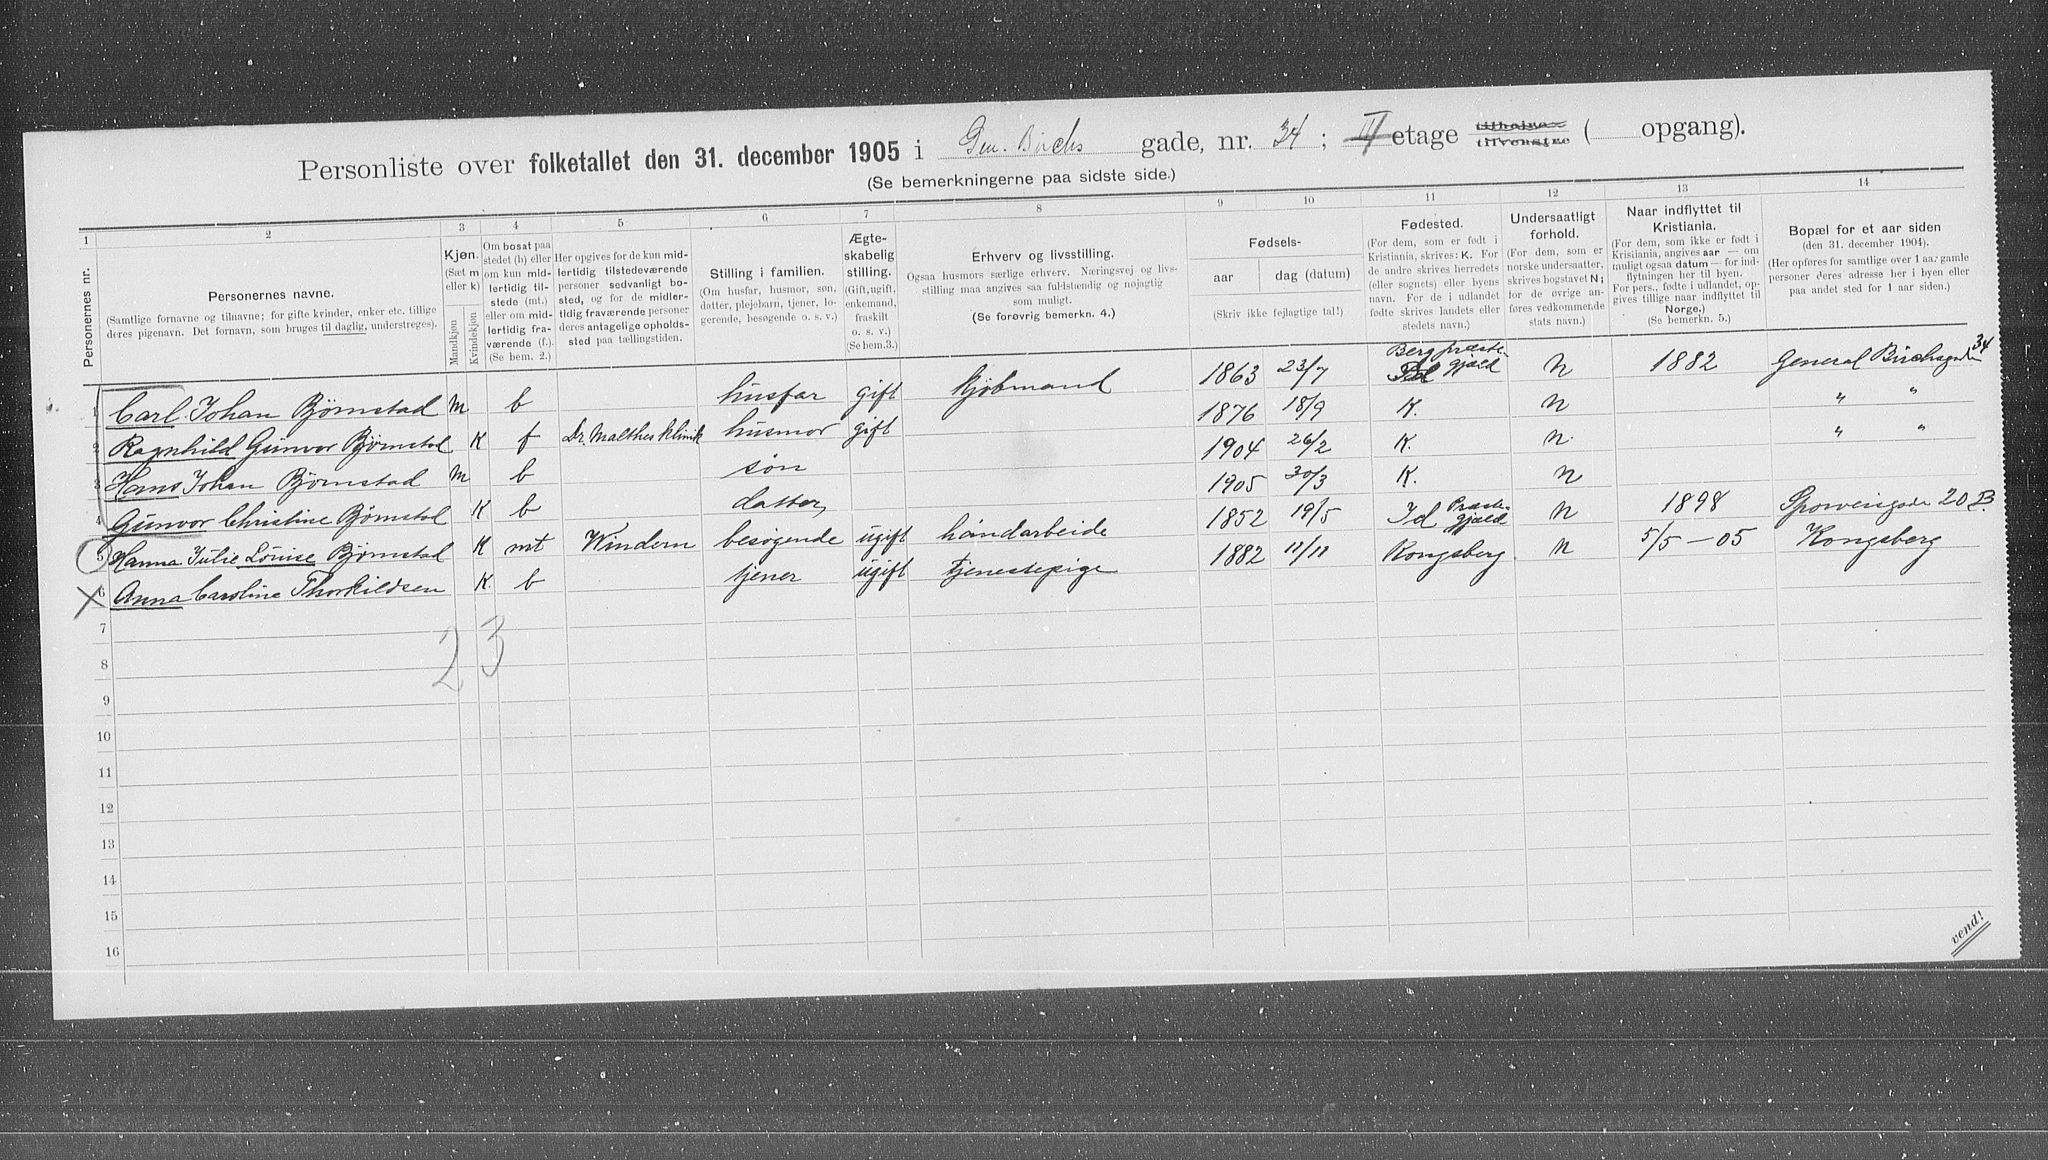 Personliste over folketallet den 31. december 1905 i Gen. Birchs gade, nr. 34; II etage tilhøire tilvenstre ( opgang).
(Se bemerkningerne paa sidste side.)
1 2 3 4 5 6 7 8 9 10 11 12 13 14
Personernes nr.
Personernes navne.
(Samtlige fornavne og tilnavne; for gifte kvinder, enker etc. tillige
deres pigenavn. Det fornavn, som bruges til daglig, understreges).
Kjøn.
(Sæt m
eller k)
Mandkjøn
Kvindekjøn
Om bosat paa
stedet (b) eller
om kun mid-
lertidig til-
stede (mt.)
eller om mid-
lertidig fra-
værende (f.).
(Se bem. 2.)
Her opgives for de kun mid-
lertidig tilstedeværende
personer sedvanligt bo-
sted, og for de midler-
tidig fraværende personer
deres antagelige opholds-
sted paa tællingstiden.
Stilling i familien.
(Om husfar, husmor, søn,
datter, plejebarn, tjener, lo-
gerende, besøgende o. s. v.)
Ægte-
skabelig
stilling.
(Gift, ugift,
enkemand,
fraskilt
o. s. v.)
(Se bem. 3.)
Erhverv og livsstilling.
Ogsaa husmors særlige erhverv. Næringsvej og livs-
stilling maa angives saa fuldstændig og nøjagtig
som muligt.
(Se forøvrig bemerkn. 4.)
Fødsels-
aar
dag (datum)
(Skriv ikke fejlagtige tal!)
Fødested.
(For dem, som er født i
Kristiania, skrives: K. For
de andre skrives herredets
(eller sognets) eller byens
navn. For de i udlandet
fødte skrives landets eller
stedets navn.)
Undersaatligt
forhold.
(For dem, som er
norske undersaatter,
skrives bogstavet N;
for de øvrige an-
føres vedkommende
stats navn.)
Naar indflyttet til
Kristiania.
(For dem, som ikke er født i
Kristiania, angives aar — om
muligt ogsaa datum — for ind-
flytningen her til byen.
For pers., fødte i udlandet, op-
gives tillige naar indflyttet til
Norge.)
(Se bemerkn. 5.)
Bopæl for et aar siden
(den 31. december 1904).
(Her opføres for samtlige over 1 aa. gamle
personer deres adresse her i byen eller
paa andet sted for 1 aar siden.)
1 Carl Johan Bjørnstad m b husfar gift kjøbmand 1863 23/7 Berg præste-gjæld N 1882 General Birchsgade 34
2 Ragnhild Gunvor Bjørnstad K f Dr. Malthes klinik husmor gift 1876 18/9 K. N " "
3 Hans Johan Bjørnstad m b søn 1904 26/2 K. N " "
4 Gunvor Christine Bjørnstad K b datter 1905 30/3 K. N
5 Hanna Julie Louise Bjørnstad K mt Windern besøgende ugift håndarbeide 1852 19/5 Id Præste-gjæld N 1898 Sporveisgade 20 B.
6 Anna Caroline Thorkildsen K b tjener ugift tjenestepige 1882 11/11 Kongsberg N 5/5 - 05 Kongsberg
7
23
8
9
10
11
12
13
14
15
16
vend!